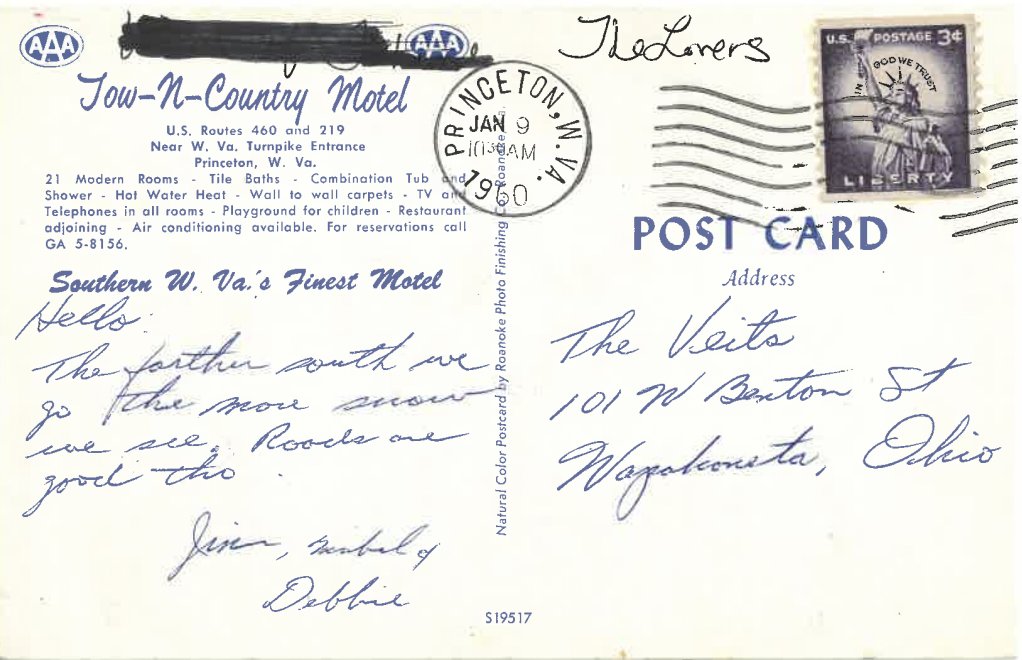 AAA
AAA
The Lovers
Tow-N-Country Motel
U.S. Routes 460 and 219
Near W. Va. Turnpike Entrance
Princeton, W. Va.
21 Modern Rooms - Tile Baths - Combination Tub and
Shower - Hot Water Heat - Wall to wall carpets - TV and
Telephones in all rooms - Playground for children - Restaurant
adjoining - Air conditioning available. For reservations call
GA 5-8156.
Southern W. Va.'s Finest Motel
Hello:
The farther south we
go the more snow
we see. Roads are
good tho.
Jim, &
Debbie
PRINCETON, W.VA.
JAN 9
1030AM
1960
Natural Color Postcard by Roanoke Photo Finishing Co. Roanoke, Va.
U.S. POSTAGE 3¢
IN GOD WE TRUST
LIBERTY
POST CARD
Address
The Veits
101 W Benton St
Wapakoneta, Ohio
S19517